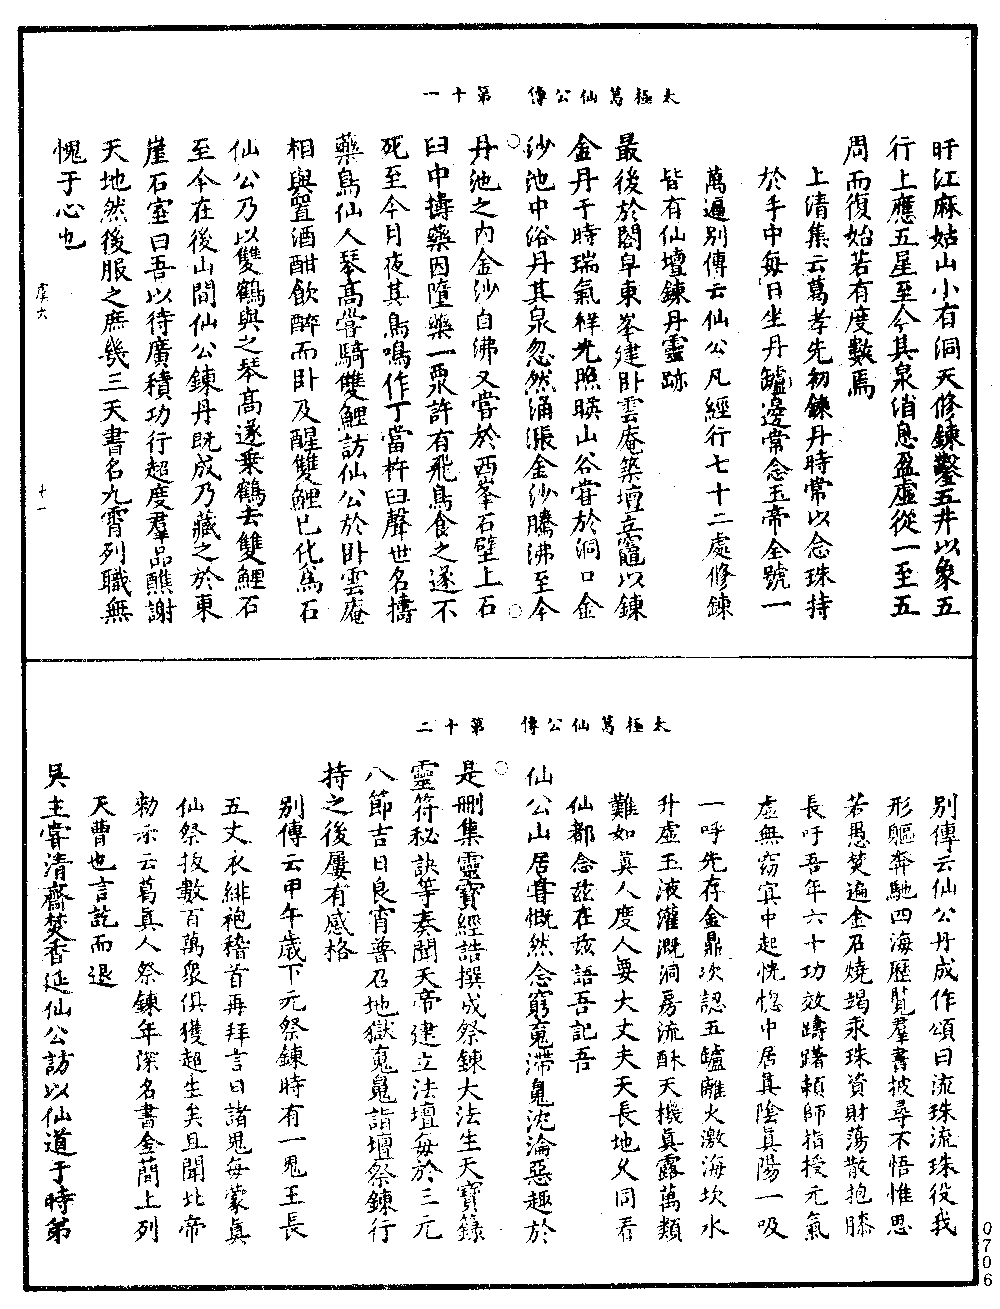 太極葛仙公傳　第十一
旴江麻姑山小有洞天修鍊鑿五井以象五
行上應五星至今其泉消息盈虛從一至五
周而復始若有度數焉
上清集云葛孝先初鍊丹時常以念珠持
於手中每日坐丹爐邊常念玉帝全號一
萬遍別傳云仙公凡經行七十二處修鍊
皆有仙壇鍊丹靈跡
最後於閤皁東峯建卧雲庵築壇立竈以鍊
金丹于時瑞氣祥光照暎山谷甞於洞口金
沙池中浴丹其泉忽然涌漲金沙騰沸至今
丹池之内金沙自沸又嘗於西峯石壁上石
臼中擣藥因墮藥一粟許有飛鳥食之遂不
死至今月夜其鳥鳴作丁當杵臼聲世名擣
藥鳥仙人琴高嘗騎雙鯉訪仙公於卧雲庵
相與置酒酣飲醉而卧及醒雙鯉已化爲石
仙公乃以雙鶴與之琴高遂乗鶴去雙鯉石
至今在後山間仙公鍊丹既成乃藏之於東
崖石室曰吾以待廣積功行超度羣品醮謝
天地然後服之庶幾三天書名九霄列職無
愧于心也
虞六
十一
太極葛仙公傳　第十二
別傳云仙公丹成作頌曰流珠流珠役我
形軀奔馳四海歷覽羣書披尋不悟惟思
若愚焚遍金石燒竭汞珠資財蕩散抱膝
長吁吾年六十功效躊躇頼師指授元氣
虛無窈㝠中起恍惚中居眞陰眞陽一吸
一呼先存金鼎次認五爐離火激海坎水
升虛玉液灌溉洞房流酥天機眞露萬類
難如眞人度人要大丈夫天長地久同看
仙都念兹在兹語吾記吾
仙公山居甞慨然念窮䰟滯鬼沈淪惡趣於
是刪集靈寶經誥撰成祭鍊大法生天寶籙
靈符秘訣等奏聞天帝建立法壇每於三元
八節吉日良宵普召地獄䰟鬼詣壇祭鍊行
持之後屢有感格
別傳云甲午歲下元祭鍊時有一鬼王長
五丈衣緋袍稽首再拜言曰諸鬼每蒙眞
仙祭拔數百萬衆俱獲超生矣且聞北帝
勑示云葛真人祭鍊年深名書金蕳上列
天曹也言訖而退
吳主甞清齋焚香延仙公訪以仙道于時第
0706